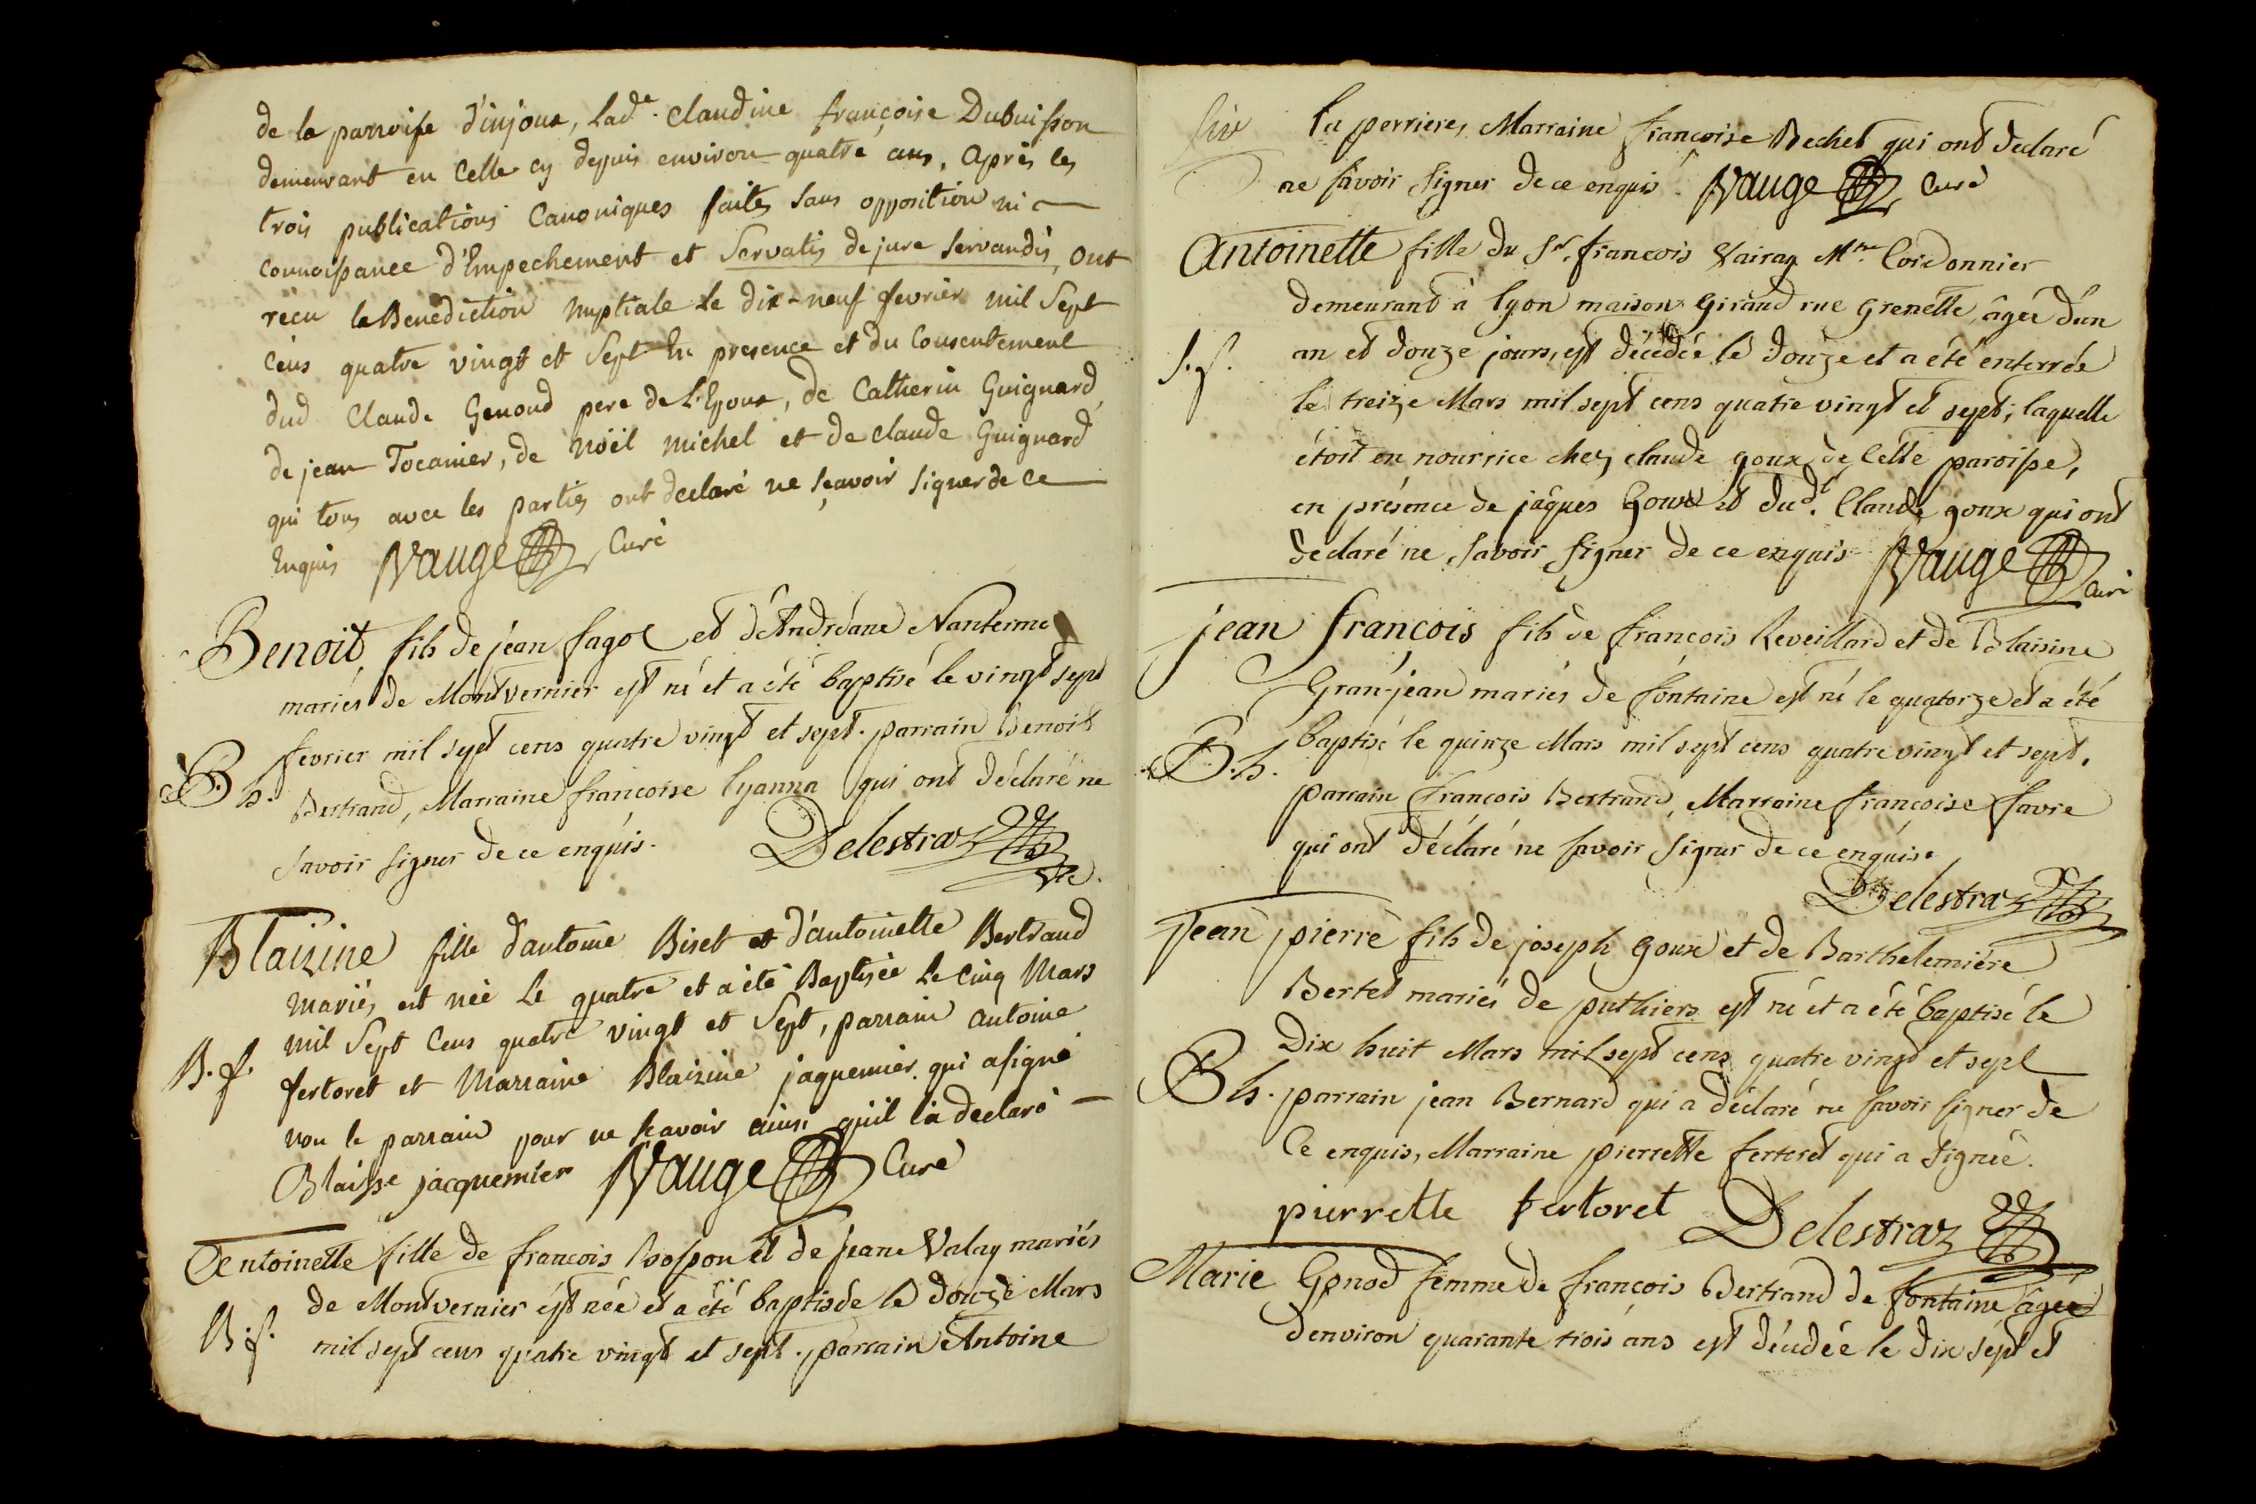 de la parroisse d'injoux, lad.e Claudine françoise Dubuisson
demeurant en Celle cy depuis environ quatre ans, après les
trois publications Canoniques faites sans opposition ni
connoissance d'Empechement et Servatis de jure servandis, ont
reçu la Benediction nuptiale le dix-neuf fevrier mil Sept
Cens quatre vingt et Sept En presence et du Consentement
dud Claude Genoud pere de L'Epoux, de Catherin Guignard,
de jean Tocanier, de Noël michel et de claude Guignard
qui tous avec les parties ont declaré ne sçavoir signer de ce
Enquis Vauge Curé
Benoit, fils de jéan fagot et d'Andréane Nanterme
mariés de Montvernier est né et a été baptisé le vingt sept
fevrier mil sept cens quatre vingt et sept. parrain Benoit
B. h. Bertrand, Marraine francoise lyanna qui ont déclaré ne
savoir signer de ce enquis. Delestraz vic.
Blaizine fille d'antoine Biset et d'antoinette Bertrand
mariés, est née Le quatre et a été Baptisée Le Cinq Mars
mil Sept Cens quatre vingt et Sept, parrain antoine
B. f. fertoret et Marraine Blaizine jaquemier qui a signé
non le parrain pour ne scavoir ainsi qu'il l'a declaré
Blaisse jacquemier Vauge Curé
Antoinette fille de francois Bosson et de jeane Valay mariés
de Montvernier est née et a été baptisée le douze Mars
B. f. mil sept cens quatre vingt et sept. parrain Antoine
la perriere, Marraine francoise Bechet qui ont declaré
ne savoir signer de ce enquis. Vauge Curé
Antoinette fille du Sr. francois Vairay Mtre Cordonnier
demeurant à lyon maison Giraud rue Grenette, âgée d'un
S. f. an et douze jours, est décédée le douze et a été enterrée
le treize Mars mil sept cens quatre vingt et sept, laquelle
étoit en nourrice chez claude goux de Cette paroisse,
en présence de jâques Goux et dud.t Claude goux qui ont
declaré ne savoir signer de ce enquis Vauge Curé
jean françois fils de françois Reveillard et de Blaisine
Gran-jean mariés de fontaine est né le quatorze et a été
B. h. baptisé le quinze Mars mil sept cens quatre vingt et sept,
parrain francois Bertrand, Marraine françoise favre
qui ont déclaré ne savoir signer de ce enquise
Delestraz
jean pierre fils de joseph goux et de Barthelemiére
Bertet mariés de puthiers est né et a été baptisé le
Dix huit Mars mil sept cens quatre vingt et sept
B h. parrain jean Bernard qui a déclaré ne savoir signer de
Ce enquis, Marraine pierrette ferteret qui a signée.
pierrette fertoret Delestraz
Marie Gonod femme de francois Bertrand de fontaine âgée
d'environ quarante trois ans est décédée le dix sept et